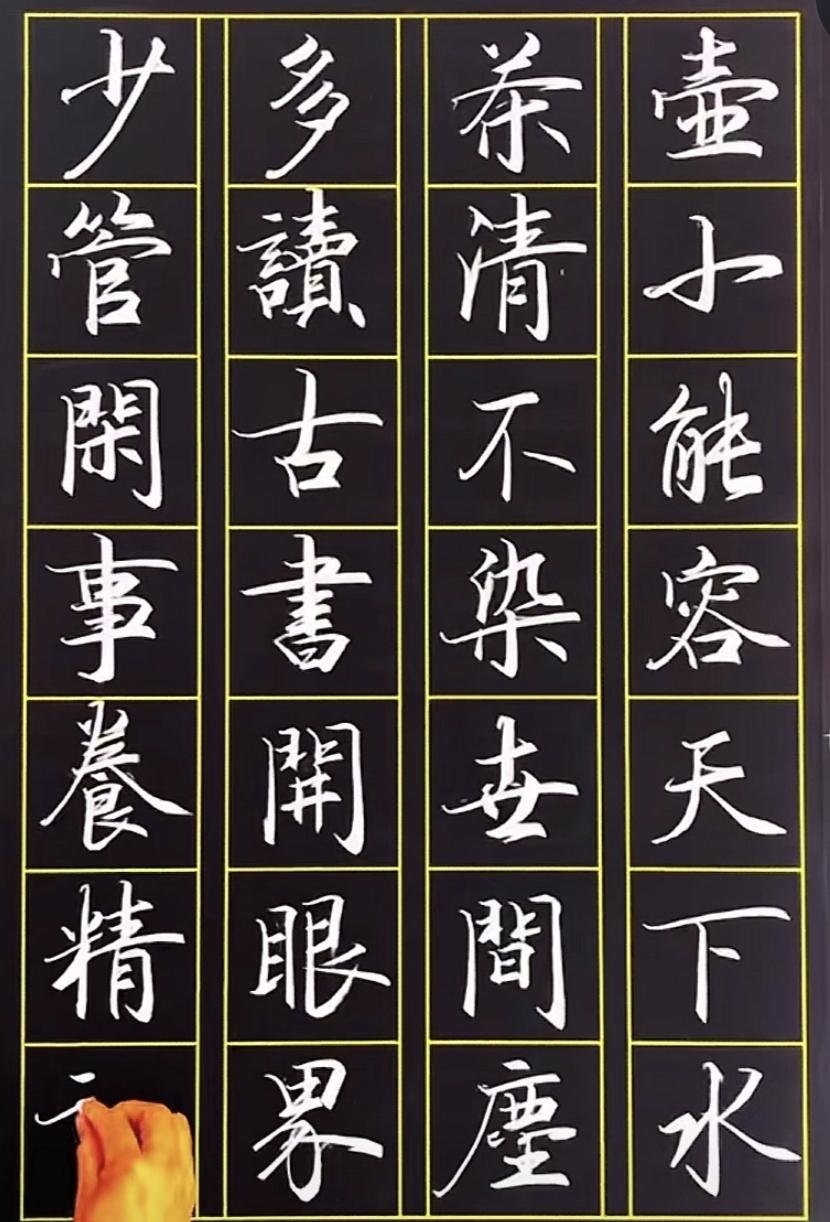 壺小能容天下水
茶清不染世間塵
多讀古書開眼界
少管閑事養精